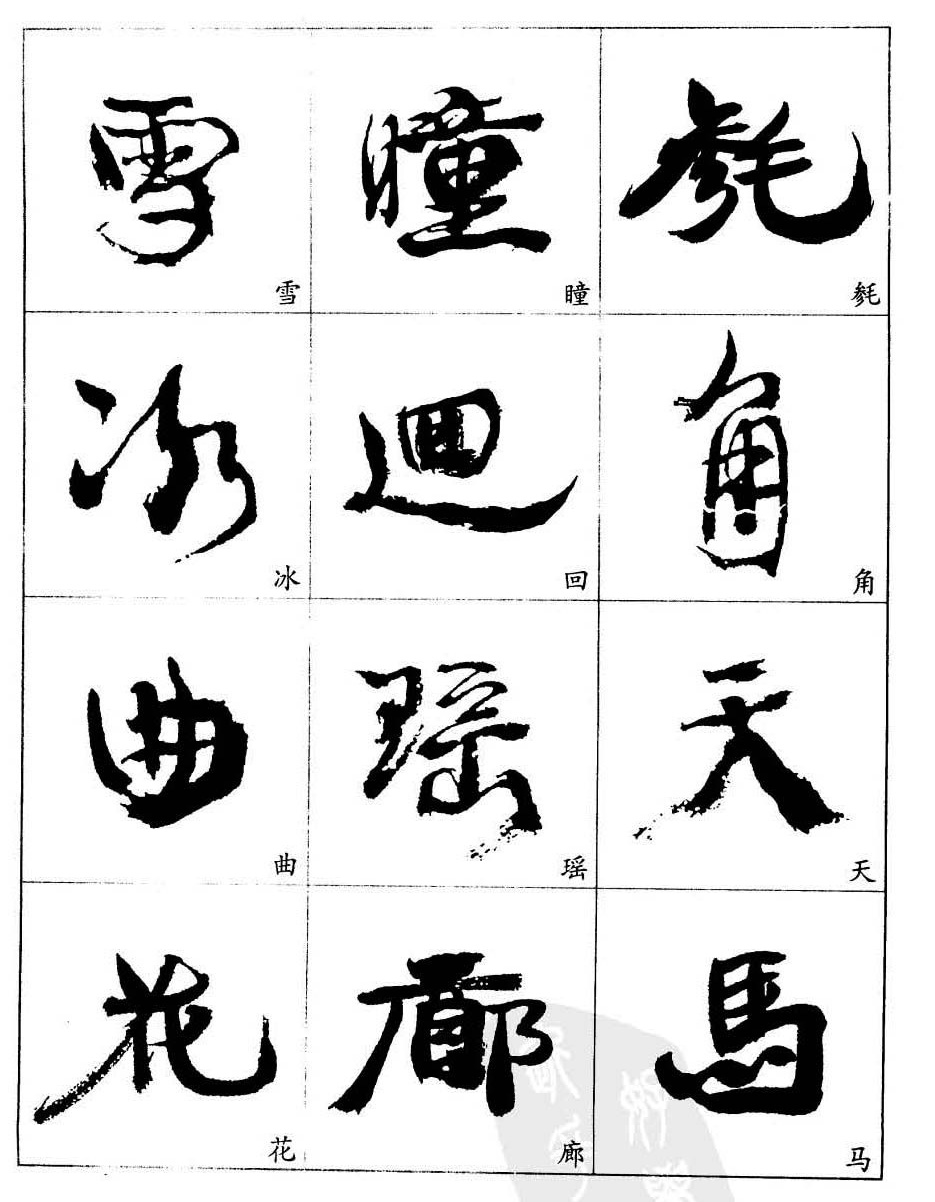 雪 瞳 毵
雪 瞳 毵
冰 迴 角
冰 回 角
曲 瑶 天
曲 瑶 天
花 廊 馬
花 廊 马